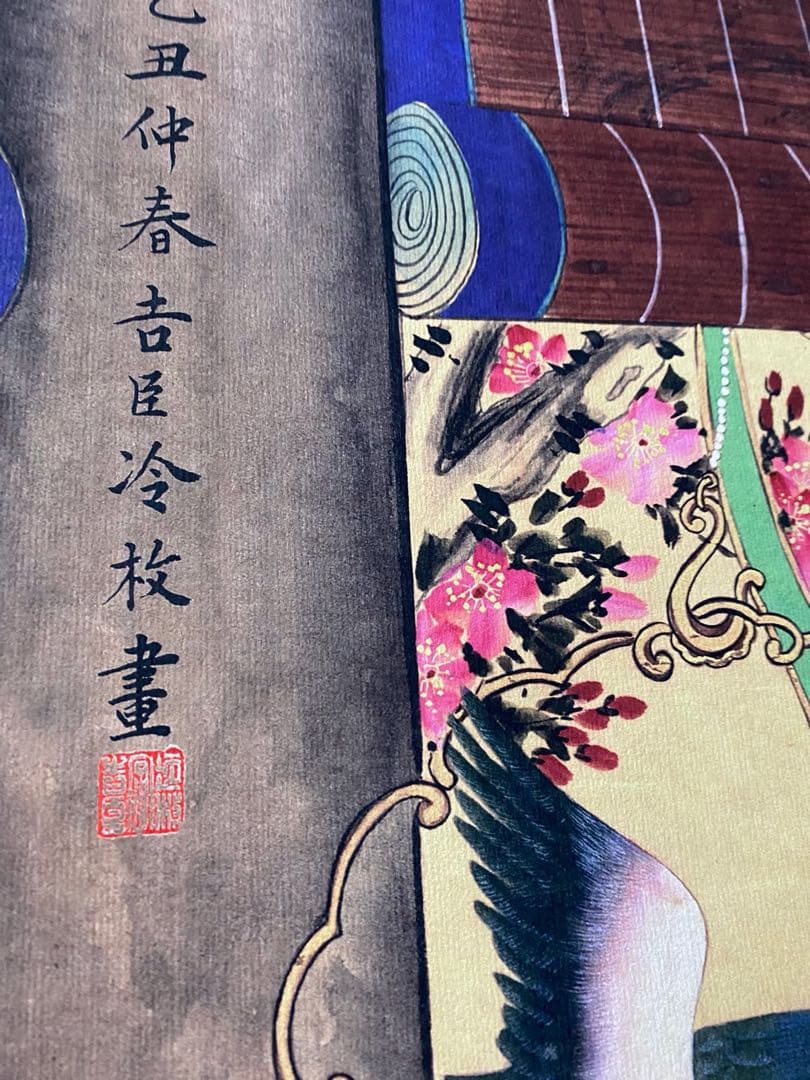 乙丑仲春吉臣冷枚畫